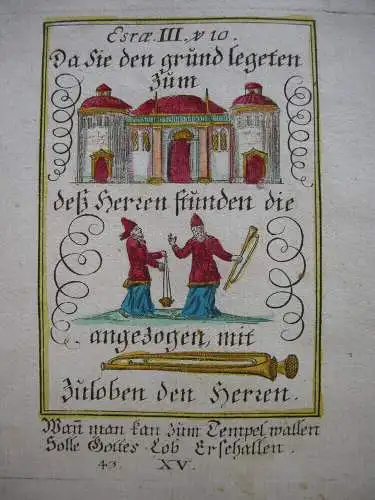 Esræ. III. v 10.
Da Sie den grund legeten
Zum
deß Herren stunden die
angezogen, mit
Zuloben den Herren.
Wañ man kan zum Tempel wallen
Solle Gottes Lob Erschallen.
43. XV.